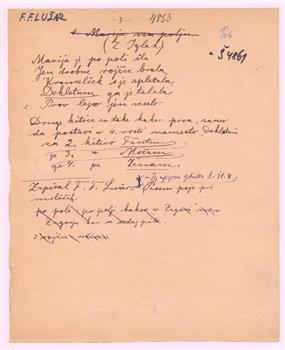 F. F. LUŠAR
- 7 -
4853
1. Marija na polju.
(Z Iglah)
Š 4861
Marija je po poli šla
Jen drobne rožice brala
Krancelček si je spletala,
Dekletam ga je talala
Prov lepo jen veselo.
Druge kitice so take kakor prva, samo
da postavi v 4. vrsti namesto Dekletam
za 2. kitico Fantam
za 3. " Možam
za 4. pa Ženam.
Zapisal F. F. Lušar. Pesem poje pri
molitvah.
po poli po polj kakor v Zagorj
Zagorje